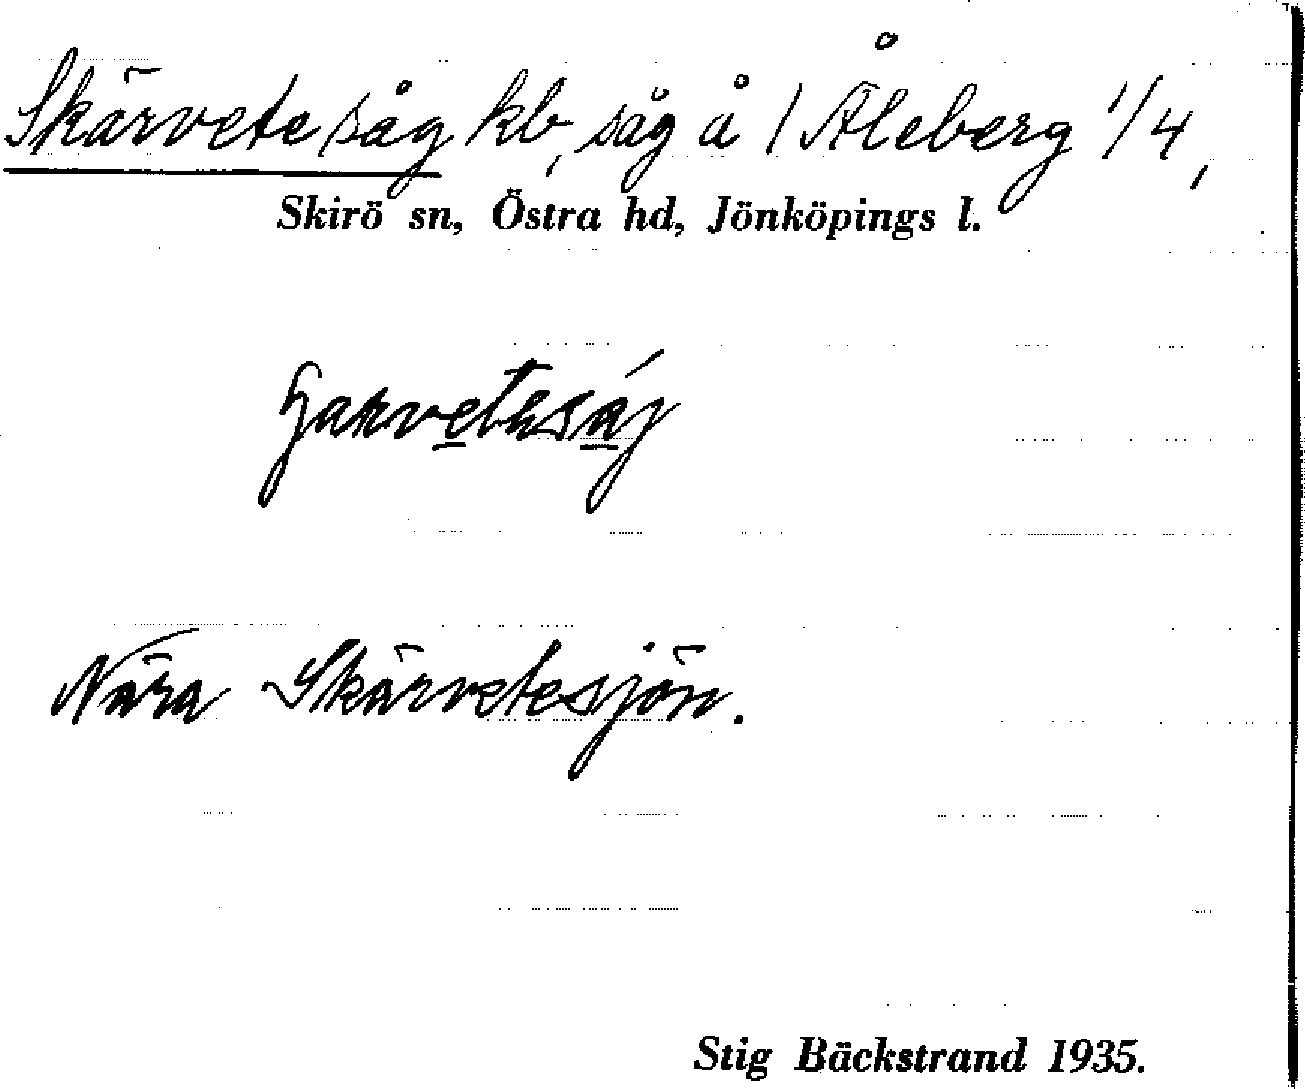 Skärvete såg kb, såg å 1 Åleberg 1/4,
Skirö sn, Östra hd, Jönköpings l.
Nära Skärvetesjön.
Stig Bäckstrand 1935.